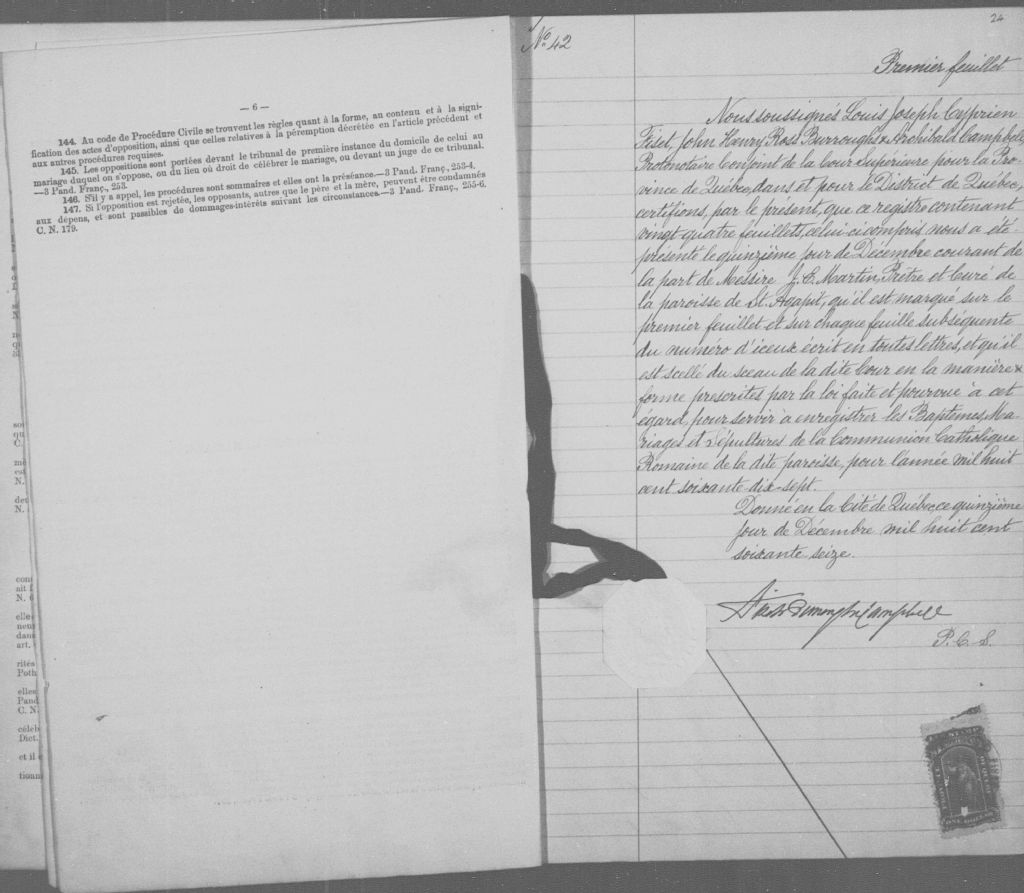 — 6 —
144. Au code de Procédure Civile se trouvent les règles quant à la forme, au contenu et à la signi-
fication des actes d'opposition, ainsi que celles relatives à la péremption décrétée en l'article précédent et
aux autres procédures requises.
145. Les oppositions sont portées devant le tribunal de première instance du domicile de celui au
mariage duquel on s'oppose, ou du lieu où droit de célébrer le mariage, ou devant un juge de ce tribunal.
—3 Pand. Franç., 253.
146. S'il y a appel, les procédures sont sommaires et elles ont la préséance.—3 Pand. Franç., 253-4.
147. Si l'opposition est rejetée, les opposants, autres que le père et la mère, peuvent être condamnés
aux dépens, et sont passibles de dommages-intérêts suivant les circonstances.—3 Pand. Franç., 255-6.
C. N. 179.
24
No. 42
Premier feuillet
Nous soussignés Louis Joseph Cyprien
Fiset, John Henry Ross Burroughs & Archibald Campbell,
Protonotaire Conjoint de la Cour Supérieure pour la Pro-
vince de Québec, dans et pour le District de Québec,
certifions, par le présent, que ce registre contenant
vingt quatre feuillets, celui-ci compris, nous a été
présenté le quinzième jour de Décembre courant de
la part de Messire J. C. Martin, Prêtre et Curé de
la paroisse de St. Agapit, qu'il est marqué sur le
premier feuillet et sur chaque feuille subséquente
du numéro d'iceux écrit en toutes lettres, et qu'il
est scellé du sceau de la dite Cour en la manière &
forme prescrites par la loi faite et pourvue à cet
égard, pour servir à enregistrer les Baptêmes, Ma-
riages et Sépultures de la Communion Catholique
Romaine de la dite paroisse, pour l'année mil huit
cent soixante-dix-sept.
Donné en la Cité de Québec, ce quinzième
jour de Décembre mil huit cent
soixante seize.
Fiset Burroughs Campbell
P. C. S.
STAMP
ONE DOLLAR